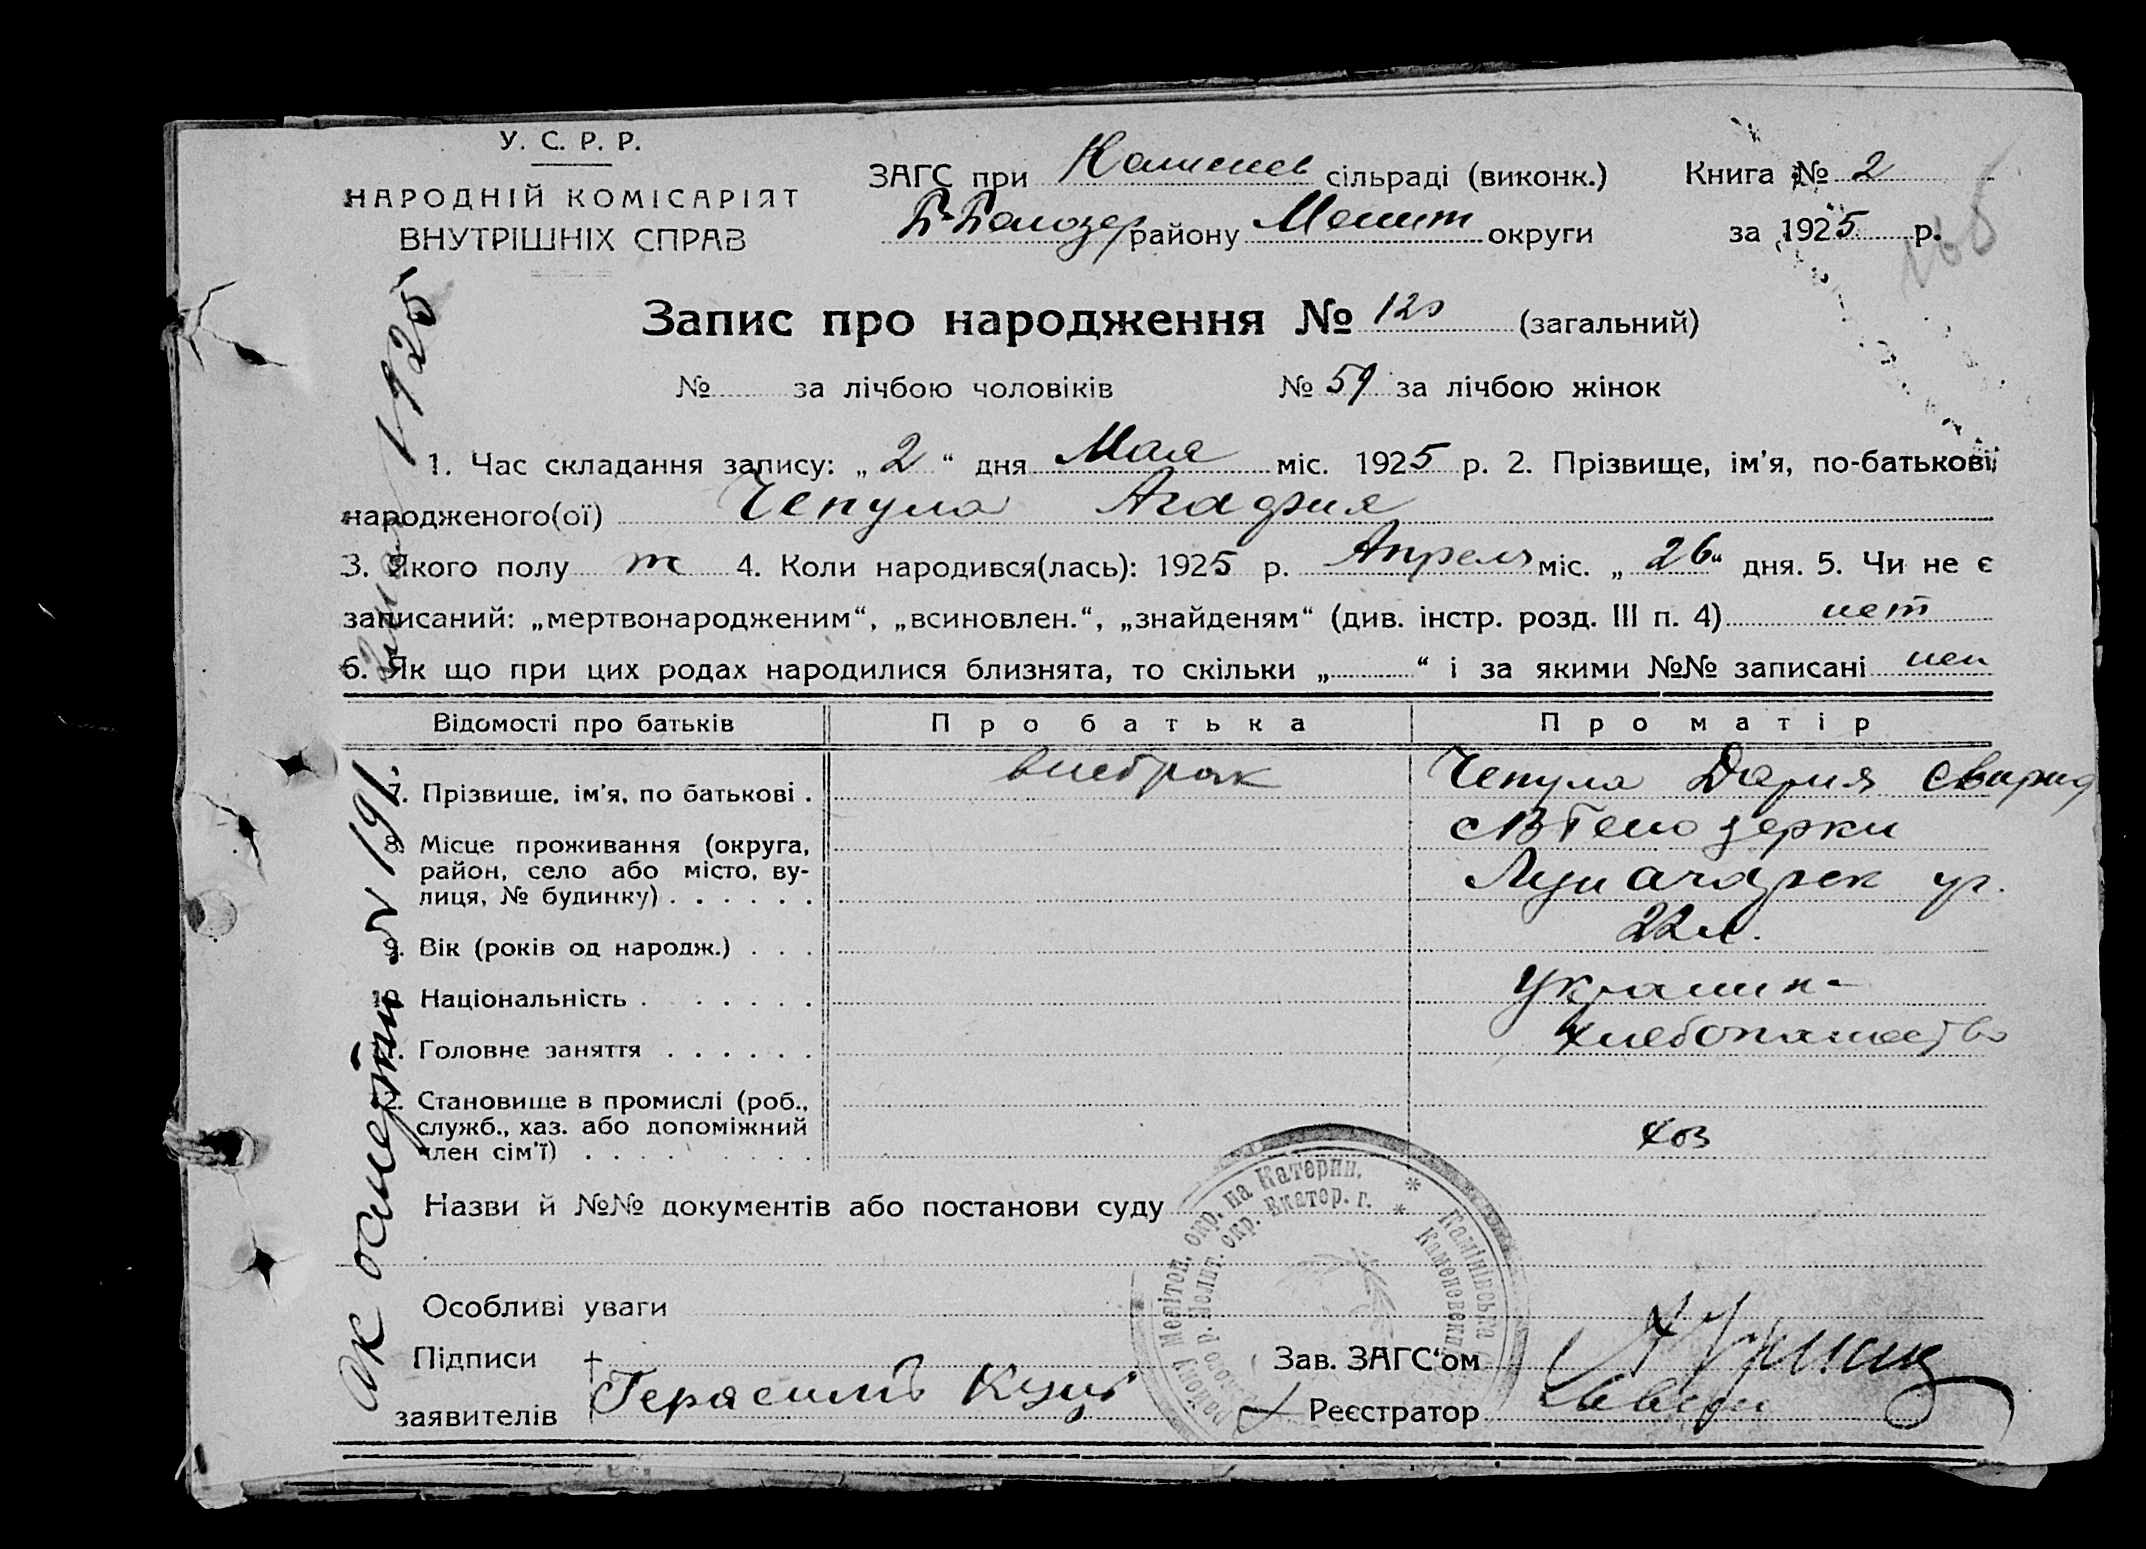 У. С. Р. Р.
НАРОДНІЙ КОМІСАРІЯТ
ВНУТРІШНІХ СПРАВ
ЗАГС при Каменев сільраді (виконк.)
Б-Белозер району Мелит округи
Книга № 2
за 1925 р.
Запис про народження № 120 (загальний)
№ за лічбою чоловіків № 59 за лічбою жінок
1. Час складання запису: „ 2 “ дня Мая міс. 1925 р. 2. Прізвище, ім'я, по-батькові
народженого(ої) Чепула Агафия
3. Якого полу ж 4. Коли народився(лась): 1925 р. Апреля міс. „ 26 “ дня. 5. Чи не є
записаний: „мертвонародженим“, „всиновлен.“, „знайденям“ (див. інстр. розд. III п. 4) нет
6. Як що при цих родах народилися близнята, то скільки „ “ і за якими №№ записані нет
Відомості про батьків Про батька Про матір
7. Прізвище, ім'я, по батькові . внебрак Чепула Дария
8. Місце проживання (округа, район, село або місто, ву-
лиця, № будинку) . . . . . . Белозерки
Луначарск ул.
9. Вік (років од народж.) . . . 22 л.
10. Національність . . . . . . . Украин-
11. Головне заняття . . . . . . хлебопашество
12. Становище в промислі (роб.,
служб., хаз. або допоміжний
член сім'ї) . . . . . . . . . хоз
Назви й №№ документів або постанови суду
Особливі уваги
Підписи
заявителів Герасим Куц
Зав. ЗАГС'ом
Реєстратор
Мелітоп. окр. на Катерин.
Мелит. окр. Екатер. г.
Камінівська
Каменевск
Ак о смерти № 191
1925